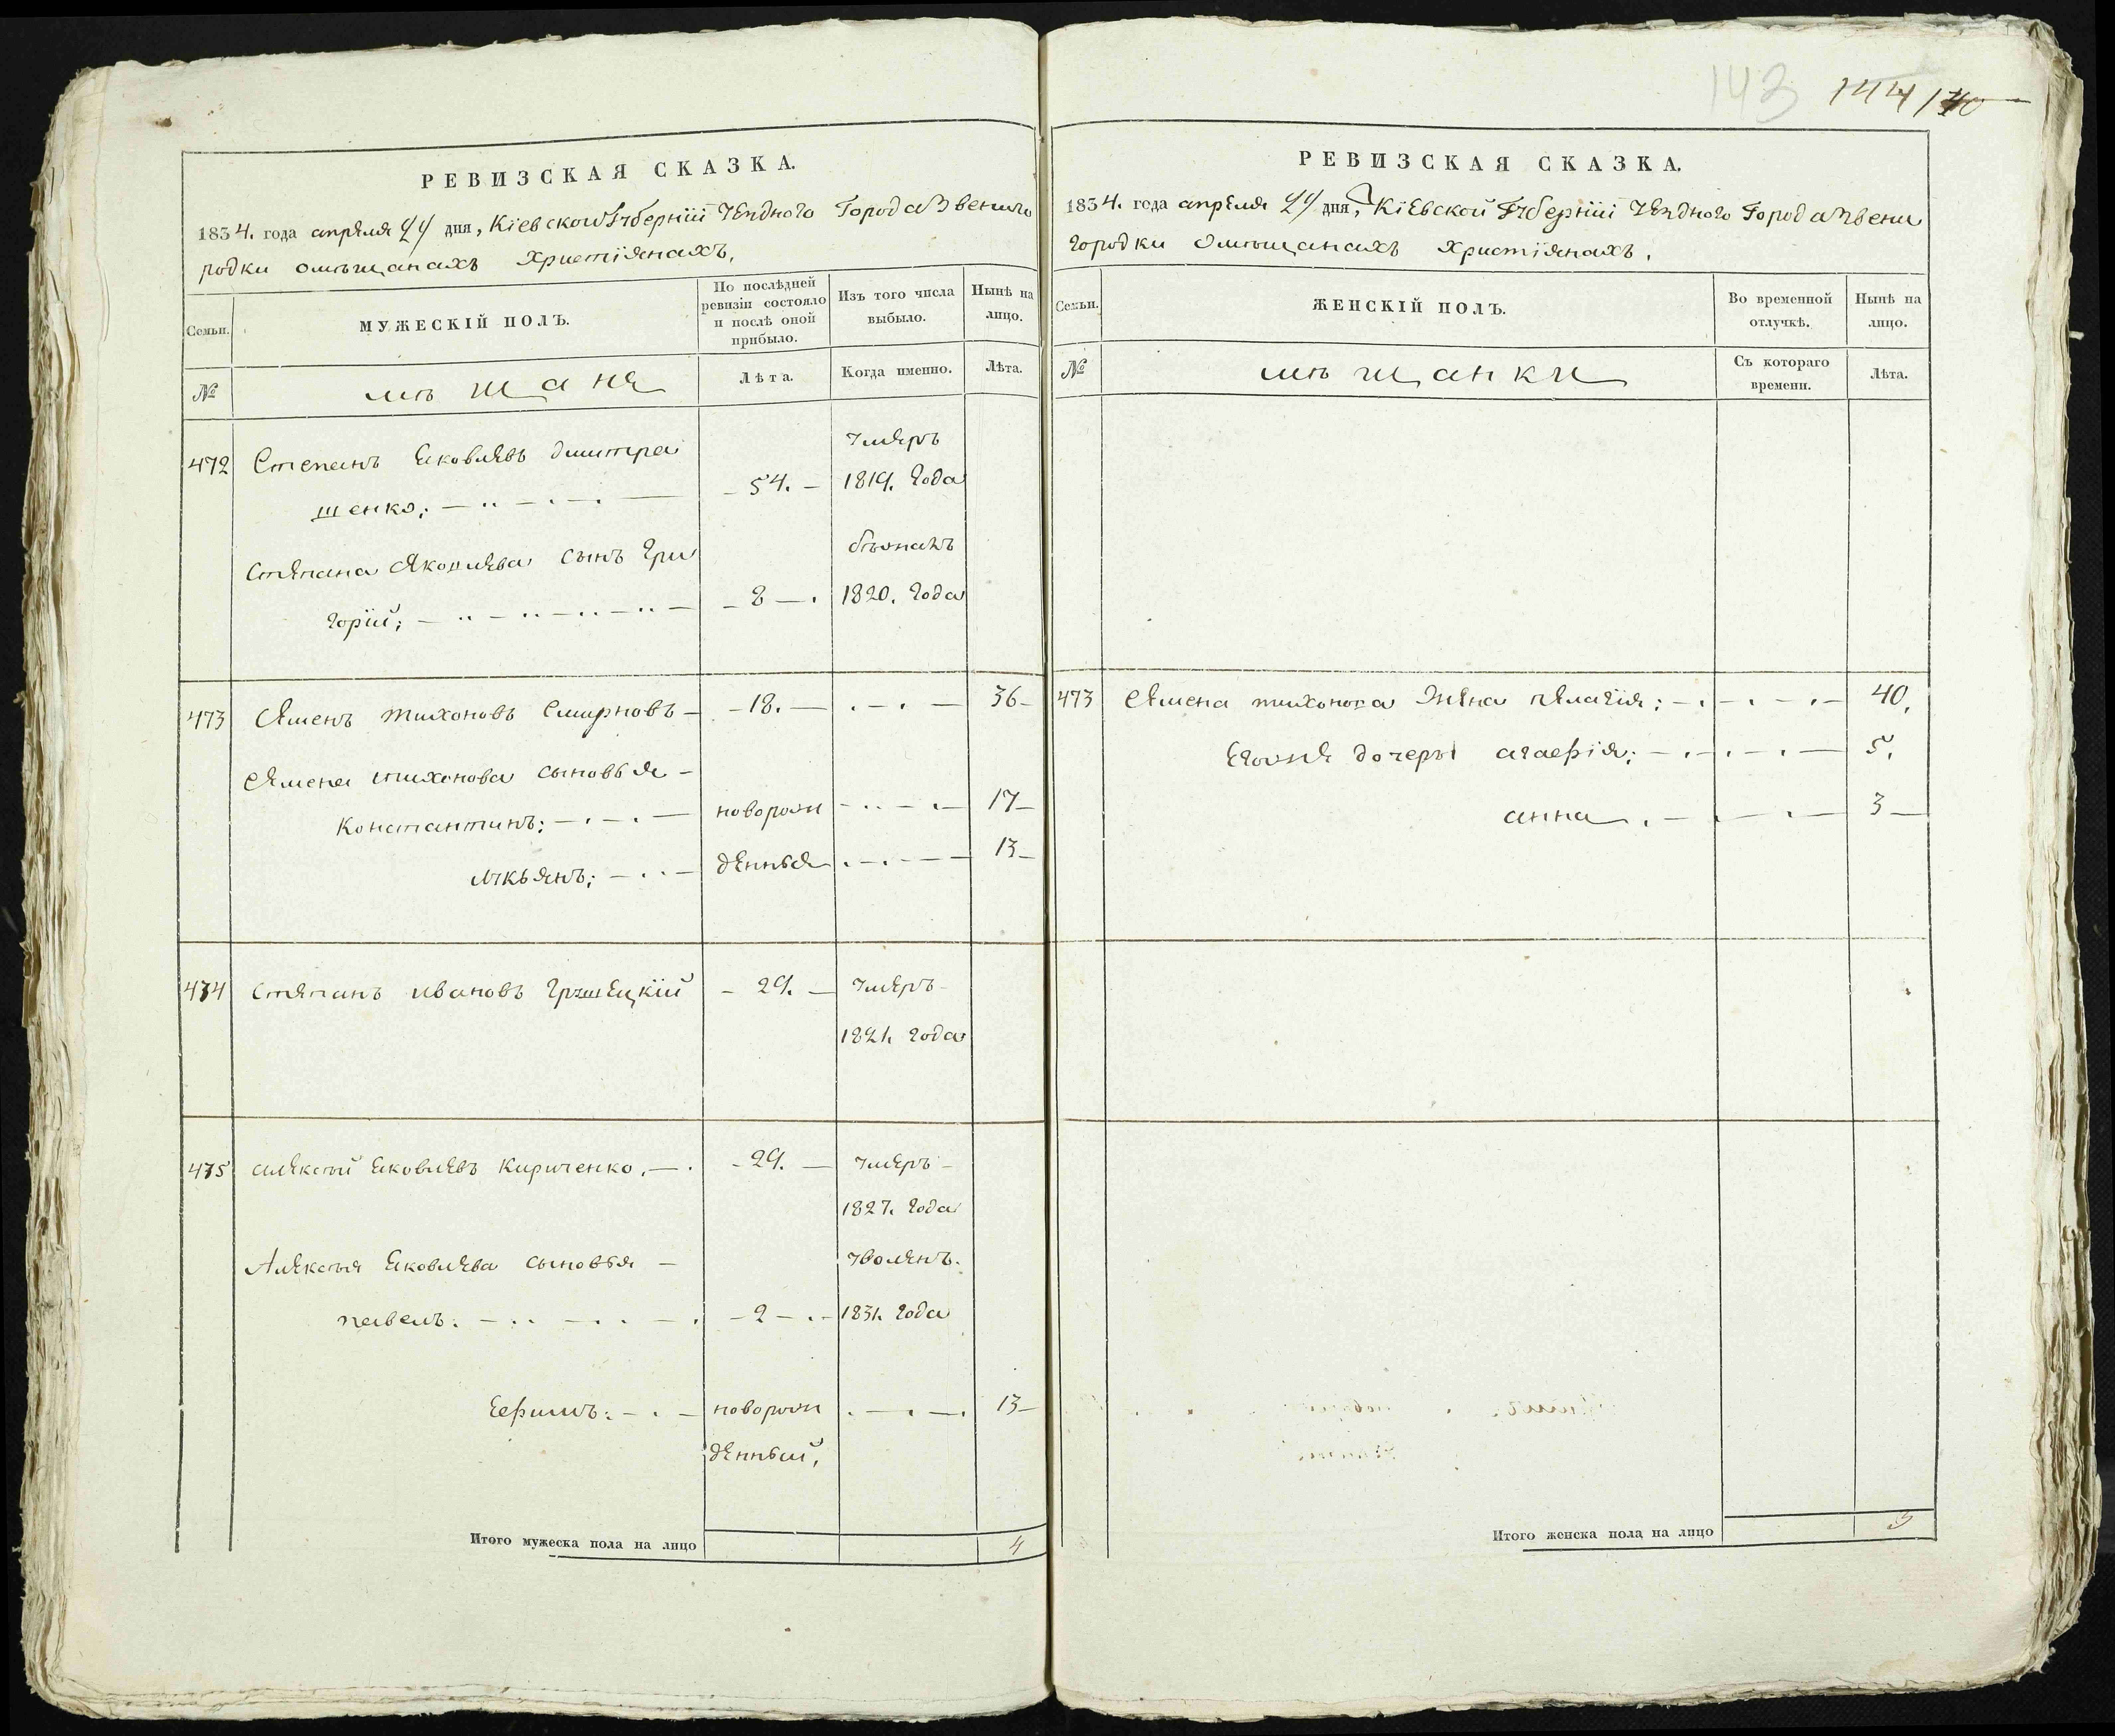 143 144
РЕВИЗСКАЯ СКАЗКА.
1834. года апреля дня, Кіевской Губерніи уезднаго Города Звениго
родки омѣщанахъ Христіянахъ,
Семьи.
МУЖЕСКІЙ ПОЛЪ.
По послѣдней
ревизіи состояло
и послѣ оной
прибыло.
Изъ того числа
выбыло.
Нынѣ на
лицо.
№
мѣщане
Лѣта.
Когда именно.
Лѣта.
472 Степанъ Яковлевъ Дмитра умеръ
шенко; 54. 1819. Года
Степана Яковлева сынъ Гри
горій; 8 1820. Года
473 Семенъ Тихоновъ Смирновъ 18. 36
Семена Тихонова сыновья
Константинъ; новорож 17
Лукьянъ; денныя 13
474 Степанъ Ивановъ 29. умеръ
1821. Года
475 Алексѣй Яковлевъ Кириченко. 29. умеръ
1827. Года
Алексѣя Яковлева сыновья уволенъ.
Павелъ. 2 1831. Года
Ефимъ. новорож 13
денный,
Итого мужеска пола на лицо 4
РЕВИЗСКАЯ СКАЗКА.
1834. года апреля дня, Кіевской Губерніи уезднаго Города Звени
городки омѣщанахъ Христіянахъ,
Семьи.
ЖЕНСКІЙ ПОЛЪ.
Во временной
отлучкѣ.
Нынѣ на
лицо.
№
мѣщанки
Съ котораго
времени.
Лѣта.
473 Семена Тихонова жена Пелагія; 40.
Егоже дочеры Агафія; 5.
Анна 3
Итого женска пола на лицо 3